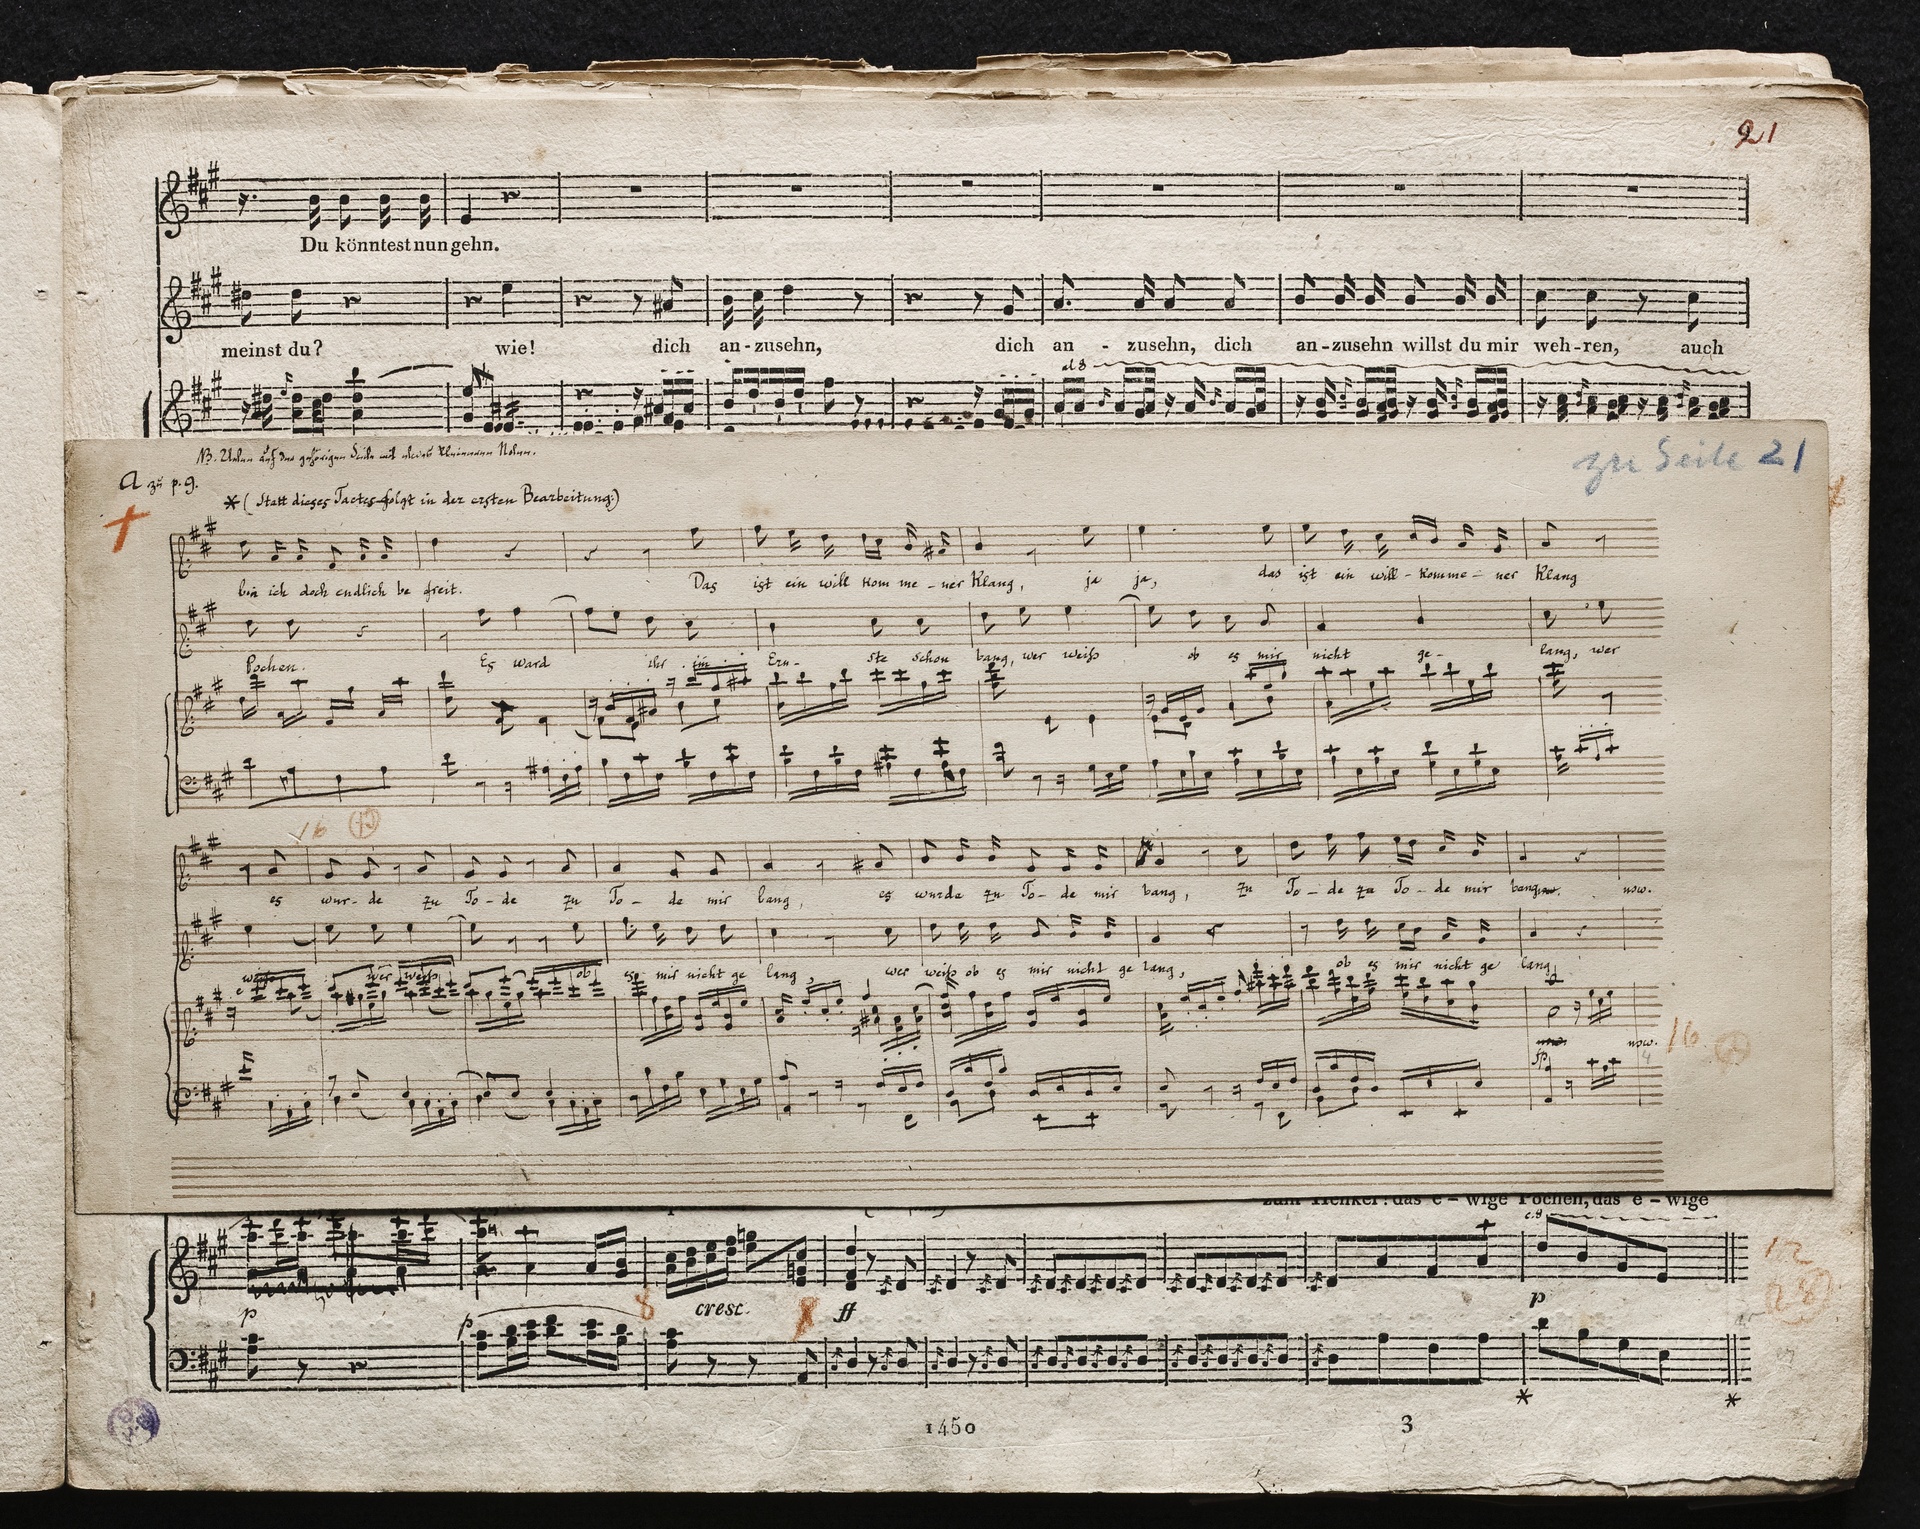 21
Du könntest nun gehn.
meinst du? wie! dich an-zusehn, dich an - zusehn, dich an-zusehn willst du mir weh-ren, auch
al 8
NB. Unten auf der gehörigen Seite mit Noten.
zu Seite 21
A zu p. 9.
* (Statt dieses Tactes folgt in der ersten Bearbeitung:)
bin ich doch endlich be freit. Das ist ein will kom me-ner Klang, ja ja, das ist ein will-komme-ner Klang
Pochen. Es ward ihr im Ern-ste schon bang, wer weiß ob es mir nicht ge-lang, wer
16
es wur-de zu To-de zu To-de mir bang, es wurde zu To-de mir bang, zu To-de zu To-de mir bang usw.
weiß wer weiß ob es mir nicht ge lang, wer weiß ob es mir nicht ge lang, ob es mir nicht ge lang,
usw. 16
fp
zum Henker! das e-wige Pochen, das e-wige
c.8
12
28
p p 8 cresc. ff p
* *
1450 3